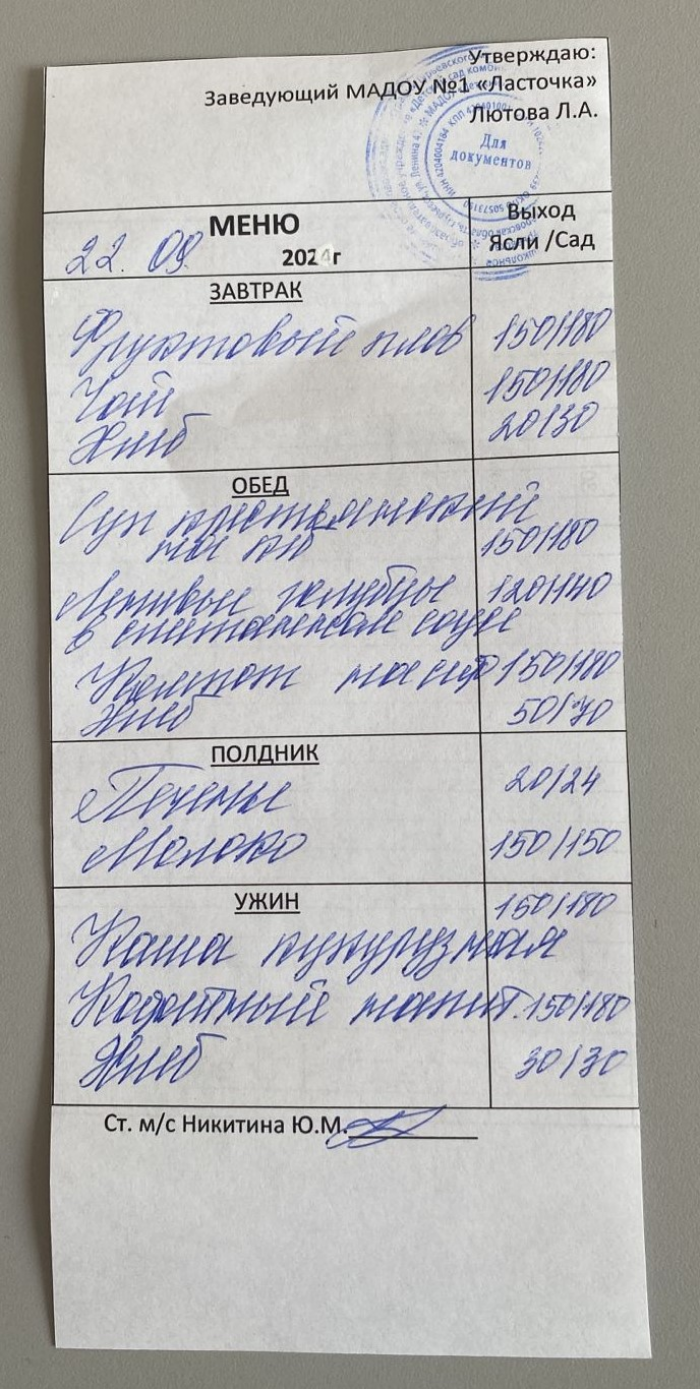 Утверждаю:
Заведующий МАДОУ №1 «Ласточка»
Лютова Л.А.
Для
документов
МЕНЮ
Выход
22. 09. 2021г
Ясли /Сад
ЗАВТРАК
Фруктовый плов 150/180
Чай 150/180
Хлеб 20/30
ОБЕД
Суп крестьянский
на кб 150/180
Ленивые голубцы 120/140
в сметанном соусе
Компот 150/180
Хлеб 50/70
ПОЛДНИК
Печенье 20/24
Молоко 150/150
УЖИН
150/180
Каша кукурузная
Кофейный напит. 150/180
Хлеб 30/30
Ст. м/с Никитина Ю.М.